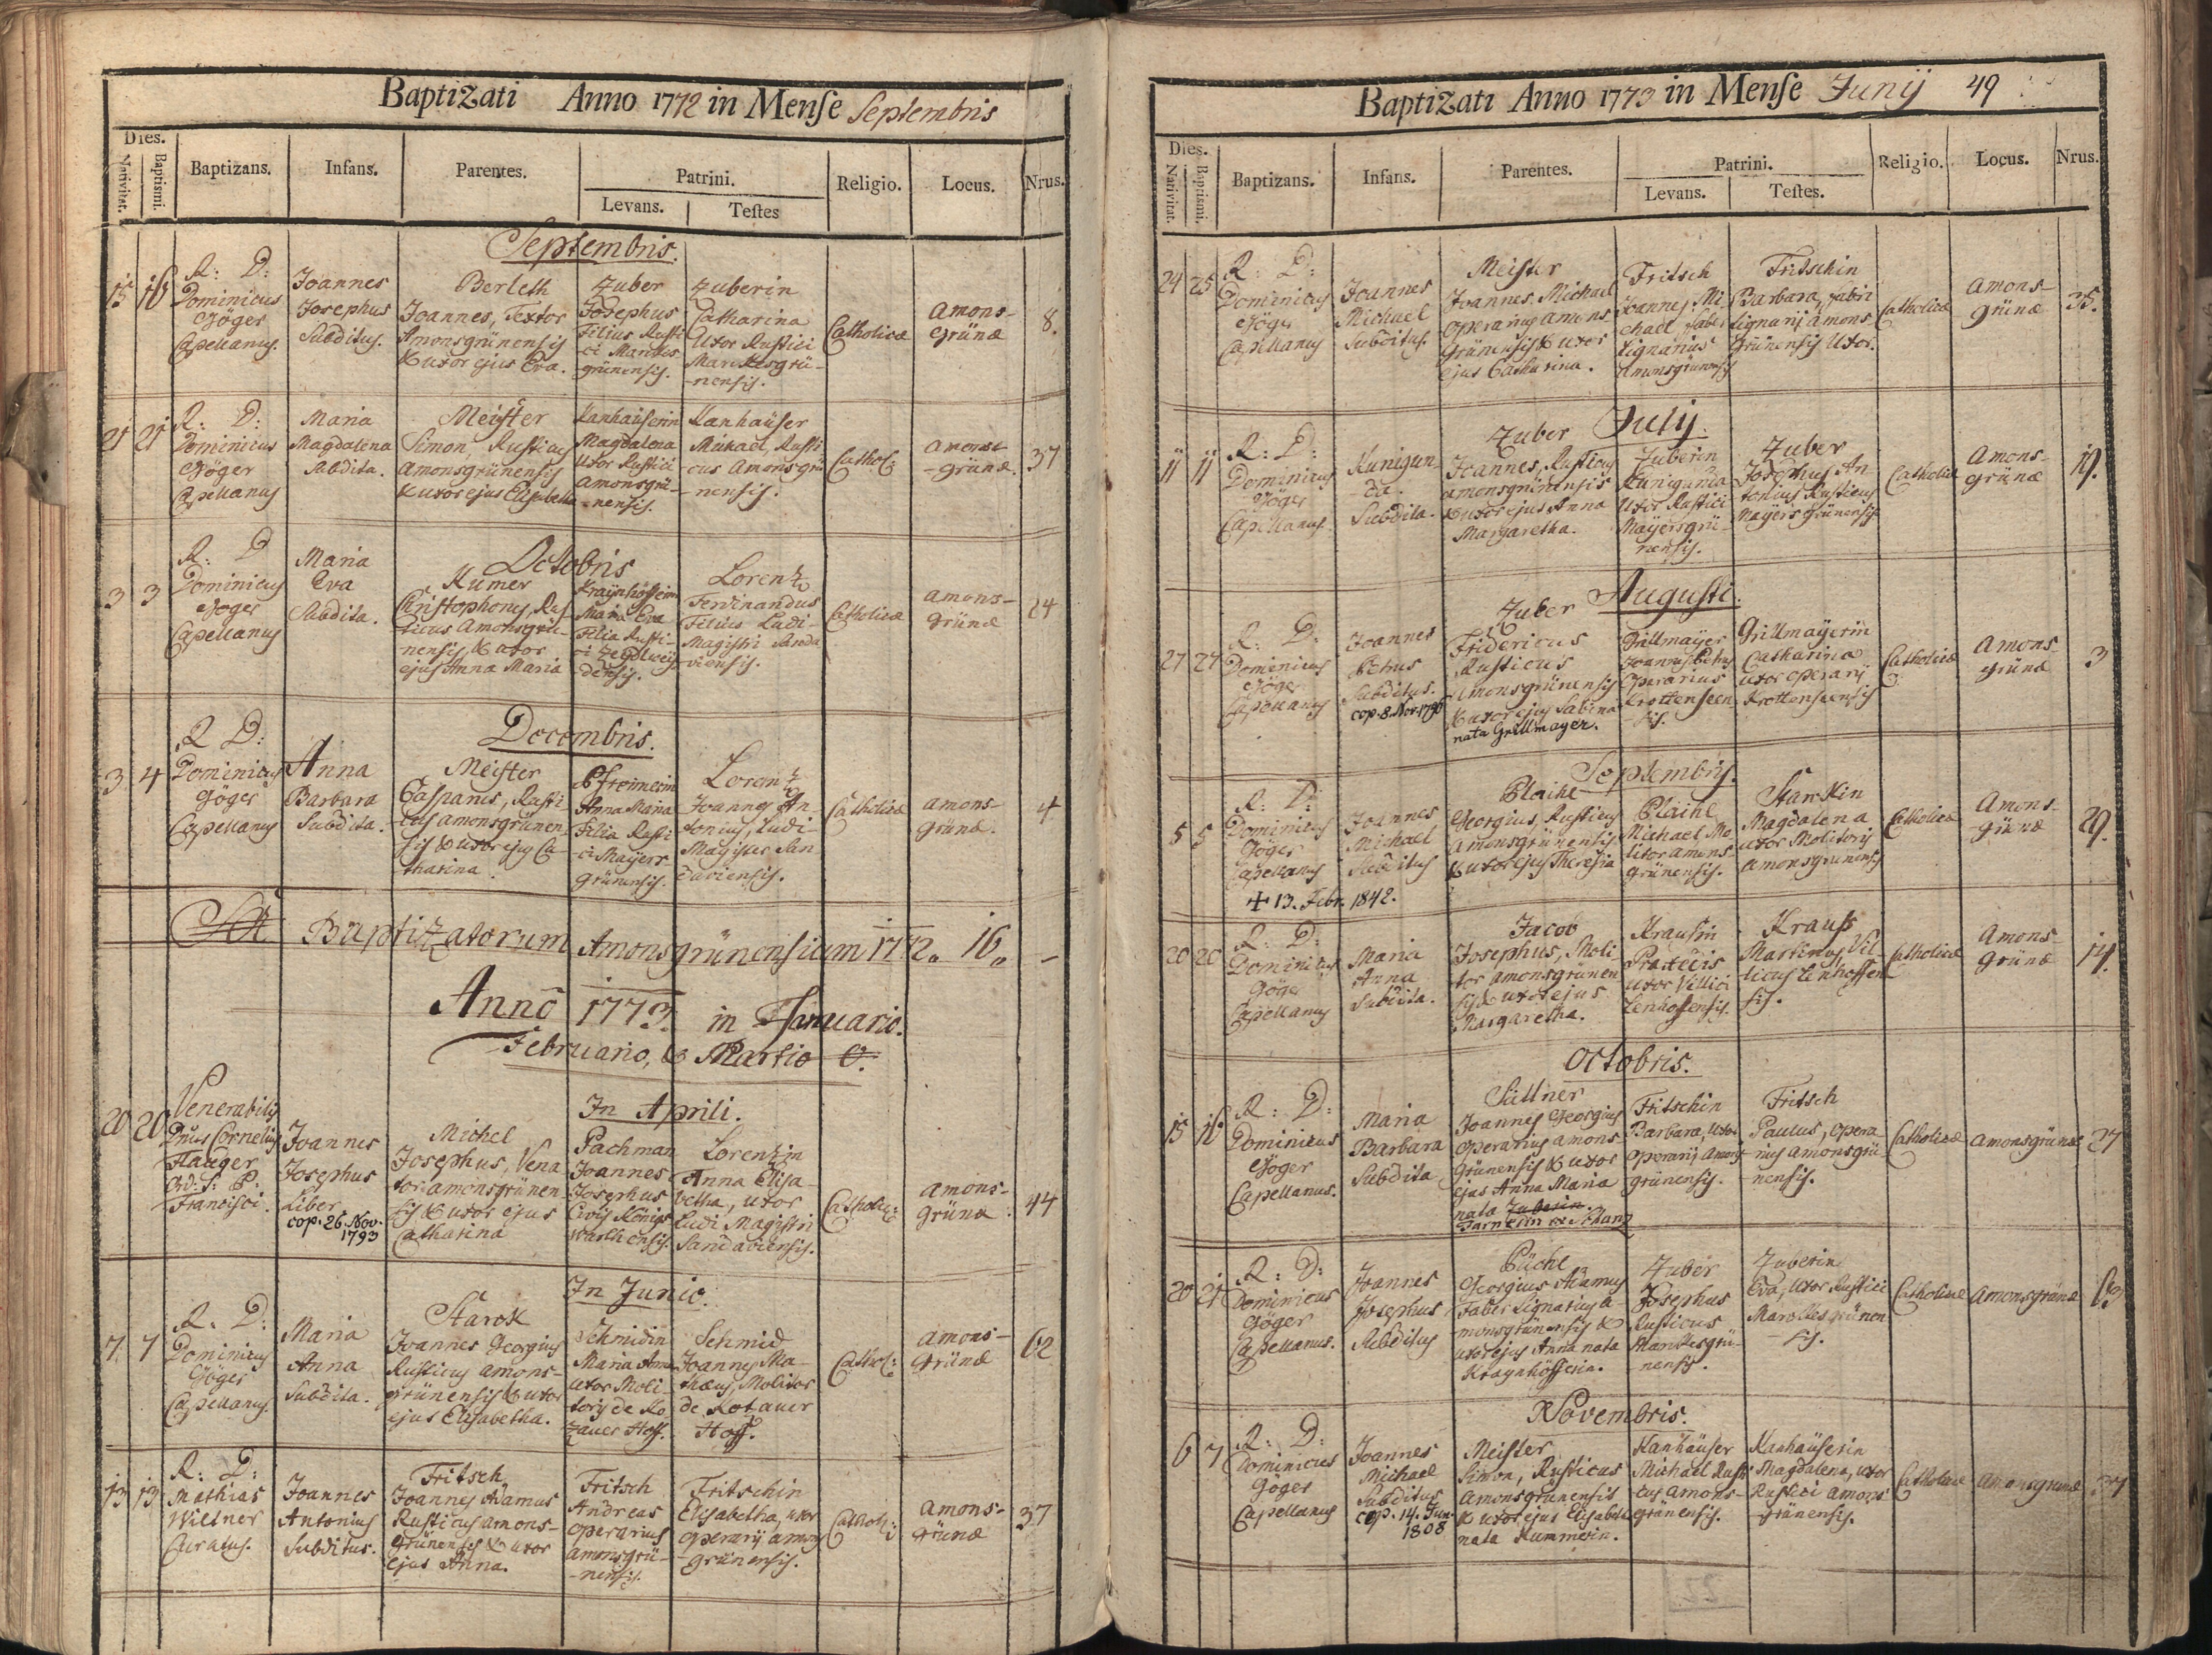 Baptizati Anno 1772 in Mense Septembris
Dies.
Nativitat.
Baptismi.
Baptizans.
Infans.
Parentes.
Patrini.
Levans.
Testes
Religio.
Locus.
Nrus.
Septembris.
15 16
R: D:
Dominicus
Göger
Capellanus.
Joannes
Josephus
Subditus.
Berleth
Joannes, Textor
Amonsgrünensis
& uxor ejus Eva.
Zuber
Josephus
Filius Rusti
ci Markes
grünensis.
Zuberin
Catharina
Uxor Rustici
Markesgrü-
-nensis.
Catholicæ
Amons-
grünæ
8.
21 21
R: D:
Dominicus
Göger
Capellanus
Maria
Magdalena
Subdita.
Meister
Simon, Rusticus
Amonsgrünensis
& uxor ejus Elisabetha
Kanhäuserin
Magdalena
Uxor Rustici
Amonsgrü-
-nensis.
Kanhäuser
Michael, Rusti
cus Amonsgrü
-nensis.
Cathol:
Amons
-grünæ.
37
Octobris
3 3
R: D
Dominicus
Göger
Capellanus
Maria
Eva
Subdita.
Kumer
Christophorus, Rus
ticus Amonsgrü-
nensis, & uxor
ejus Anna Maria
Maria Eva
Filia Rusti-
ci
densis.
Lorentz
Ferdinandus
Filius Ludi-
Magistri Sanda
viensis.
Catholicæ
Amons-
grünæ
24
Decembris.
3 4
R D:
Dominicus
Göger
Capellanus
Anna
Barbara
Subdita.
Meister
Casparus, Rusti
cus amonsgrünen
sis & uxor ejus Ca-
tharina.
Anna Maria
Filia Rusti-
ci Mayers
grünensis.
Lorentz
Joannes An-
tonius, Ludi-
Magister San
daviensis.
Catholicæ
amons-
grünæ.
4
Baptizatorum Amonsgrünensium 1772 „ 16 „
Anno 1773. in Januario.
Februario, & Martio O.
In Aprili.
20 20
Venerabilis
Dnus Cornelius
Hauger
Ord: S: P:
Francisci.
Joannes
Josephus
Liber
cop. 26. Nov.
1793
Michel
Josephus, Vena
tor amonsgrünen
sis & uxor ejus
Catharina
Pachman
Joannes
Josephus
Civis Königs
warthensis.
Lorentzin
Anna Elisa-
betha, uxor
Ludi Magistri
Sandaviensis.
Catholicæ
amons-
grünæ.
44
In Junio.
7. 7
R. D:
Dominicus
Göger
Capellanus.
Maria
Anna
Subdita.
Starck
Joannes Georgius
Rusticus amons-
grünensis & uxor
ejus Elisabetha.
Schmidin
Maria Anna
uxor Moli-
toris de Ro
tauer Hoff.
Schmid
Joannes Ma-
thæus, Molitor
de Rotauer
Hoff.
Cathol:
amons-
grünæ
62
13 13
R: D:
Mathias
Willner
Curatus.
Joannes
Antonius
Subditus.
Fritsch
Joannes Adamus
Rusticus amons-
grünensis & uxor
ejus Anna.
Fritsch
Andreas
operarius
amonsgrü-
-nensis.
Fritschin
Elisabetha, uxor
operarij amons
-grünensis.
Cathol:
amons-
grünæ
37
Baptizati Anno 1773 in Mense Junij 49
Dies.
Nativitat.
Baptismi.
Baptizans.
Infans.
Parentes.
Patrini.
Levans.
Testes.
Religio.
Locus.
Nrus.
24 25
R: D:
Dominicus
Göger
Capellanus
Joannes
Michael
Subditus.
Meister
Joannes Michael
operarius amons
grünensis & uxor
ejus Catharina.
Fritsch
Joannes Mi
chael Faber
lignarius
Amonsgrünensis
Fritschin
Barbara, Fabri
lignarij amons-
grünensis Uxor.
Catholicæ
amons-
grünæ
35.
July.
11 11
R: D:
Dominicus
Göger
Capellanus
Kunigun-
-da.
Subdita.
Zuber
Joannes, Rusticus
amonsgrünensis
& uxor ejus Anna
Margaretha.
Zuberin
Kunigunda
Uxor Rustici
Mayersgrü-
nensis.
Zuber
Josephus An
tonius Rusticus
Mayersgrünensis
Catholicæ
Amons-
grünæ
19.
Augusti.
27 27
R: D:
Dominicus
Göger
Capellanus
Joannes
Petrus
Subditus.
cop. 8. Nov. 1796
Zuber
Fridericus
Rusticus
Amonsgrünensis
& uxor ejus Sabina
nata Grillmayer.
Grillmayer
Joannes Petrus
Operarius
Krottenseen
sis.
Grillmayerin
Catharina
uxor operarij
Krottenseensis
Catholicæ
Amons
grünæ
3
Septembris.
5 5
R: D:
Dominicus
Göger
Capellanus
+ 13. Febr. 1842.
Joannes
Michael
Subditus
Plaihl
Georgius, Rusticus
Amonsgrünensis
& uxor ejus Theresia
Plaihl
Michael Mo
litor amons-
grünensis.
Starckin
Magdalena
uxor Molitoris
amonsgrünensis
Catholicæ
Amons
-grünæ
29.
20 20
R: D:
Dominicus
Göger
Capellanus
Maria
Anna
Subdita.
Jacob
Josephus, Moli-
tor amonsgrünen
sis & uxor ejus
Margaretha.
Krausin
uxor Villici
Krauss
Martinus, Vil-
licus
sis.
Catholicæ
Amons
grünæ
14.
Octobris.
15 16
R: D:
Dominicus
Göger
Capellanus.
Maria
Barbara
Subdita
Süttner
Joannes Georgius
operarius amons
grünensis & uxor
ejus Anna Maria
nata Zuberin.
Fritschin
Barbara, uxor
operarij amons
grünensis.
Fritsch
Paulus, opera-
rius amonsgrü
-nensis.
Catholicæ
amonsgrünæ
27
20 21
R: D:
Dominicus
Göger
Capellanus.
Joannes
Josephus
Subditus
Püchl
Georgius Adamus
Faber Lignarius a-
monsgrünensis &
uxor ejus Anna nata
Kraynhöfferin.
Zuber
Josephus
Rusticus
Markesgrü-
nensis.
Zuberin
Eva, uxor Rustici
Markesgrünen
-sis.
Catholicæ
Amonsgrünæ
Novembris.
6 7
R: D:
Dominicus
Göger
Capellanus
Joannes
Michael
Subditus
cop. 14. Jun.
1808
Meister
Simon, Rusticus
amonsgrünensis
& uxor ejus Elisabeth
nata Kummerin.
Kanhäuser
Michael Rusti
cus amons-
grünensis.
Kanhäuserin
Magdalena, uxor
Rustici amons
-grünensis.
Catholicæ
Amonsgrünæ
37